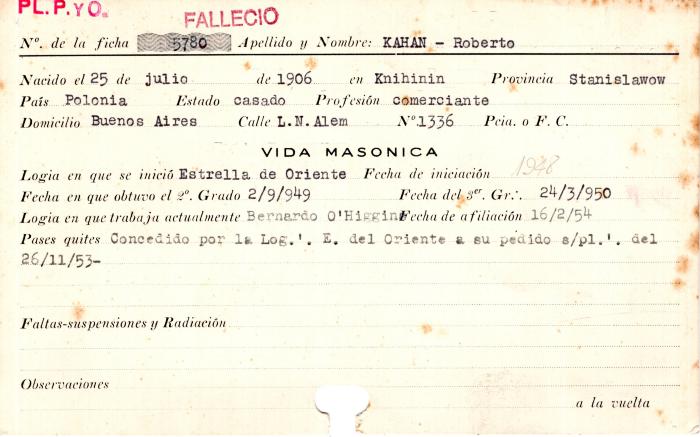 PL.P.yO.
FALLECIO
Nº. de la ficha 5780 Apellido y Nombre: KAHAN - Roberto
Nacido el 25 de julio de 1906 en Knihinin Provincia Stanislawow
País Polonia Estado casado Profesión comerciante
Domicilio Buenos Aires Calle L.N.Alem Nº 1336 Pcia. o F. C.
VIDA MASONICA
Logia en que se inició Estrella de Oriente Fecha de iniciación 1948
Fecha en que obtuvo el 2º. Grado 2/9/949 Fecha del 3er. Gr∴. 24/3/950
Logia en que trabaja actualmente Bernardo O'Higgins Fecha de afiliación 16/2/54
Pases quites Concedido por la Log.'. E. del Oriente a su pedido s/pl.'. del
26/11/53-
Faltas-suspensiones y Radiación
Observaciones
a la vuelta